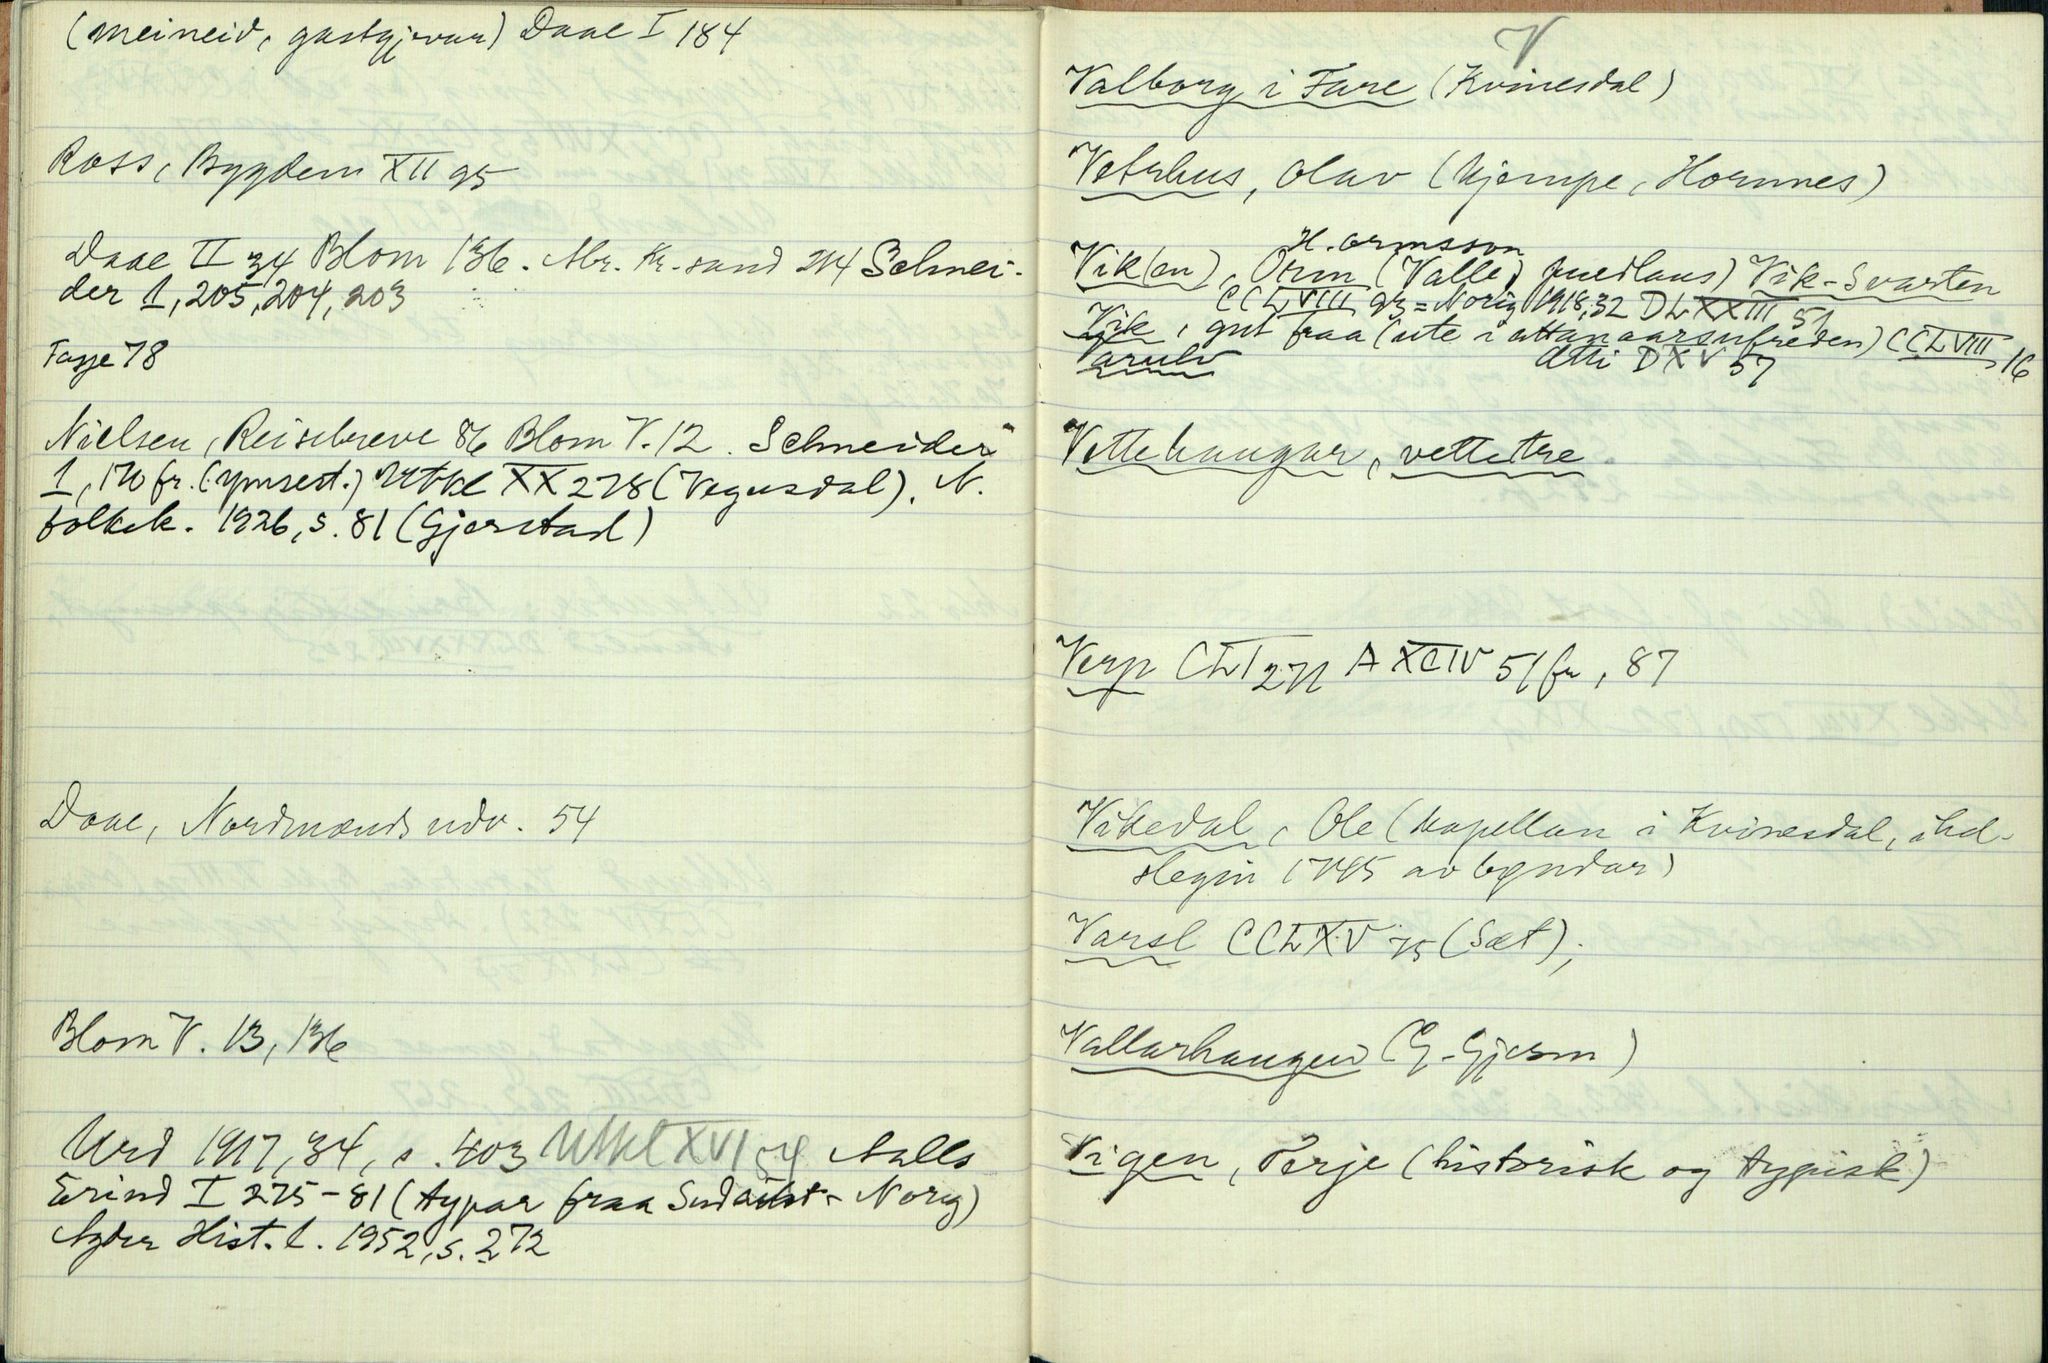 (meineid, gastgjevar) Daae I 184
Ross, Bygdem XII 95
Daae II 34 Blom 136. Mr. Kr.sand 214 Schnei-
der 1, 205, 204, 203
Faye 78
Nielsen, Reisebreve 86 Blom V. 12. Schneider
1, 170 fr. (ymsest.) Utkl XX 278 (Vegusdal). N.
folkek. 1926, s. 81 (Gjerstad)
Daae, Nordmænds udv. 54
Blom V. 13, 136
Urd 1917, 34, s. 403 Utkl XVI 54 Aalls
Erind I 275-81 (typar fraa Sudaust-Norg)
Agder Hist. l. 1952, s. 272
V
Valborg i Fare (Kvinesdal)
Vetrhus, Olav (kjempe, Hornnes)
H. ormsson
Vik(en), Orm (Valle) Vik-Svarten
CCLVIII 93 = Norig 1918, 32 DLXXIII 51
Vik, gut fraa (ute i attanaarsufreden) CCLVIII 16
DXV 57
Vettehaugar, vettetre
Verp CLI 271 A XCIV 51 fr, 87
Vikedal, Ole (kapellan i Kvinesdal, ihel-
slegin 1745 av bøndar)
Varsl CCLXV 75 (Sæt);
Vallarhaugen (Ø-Gjerm)
Vigen, Terje (historisk og typisk)